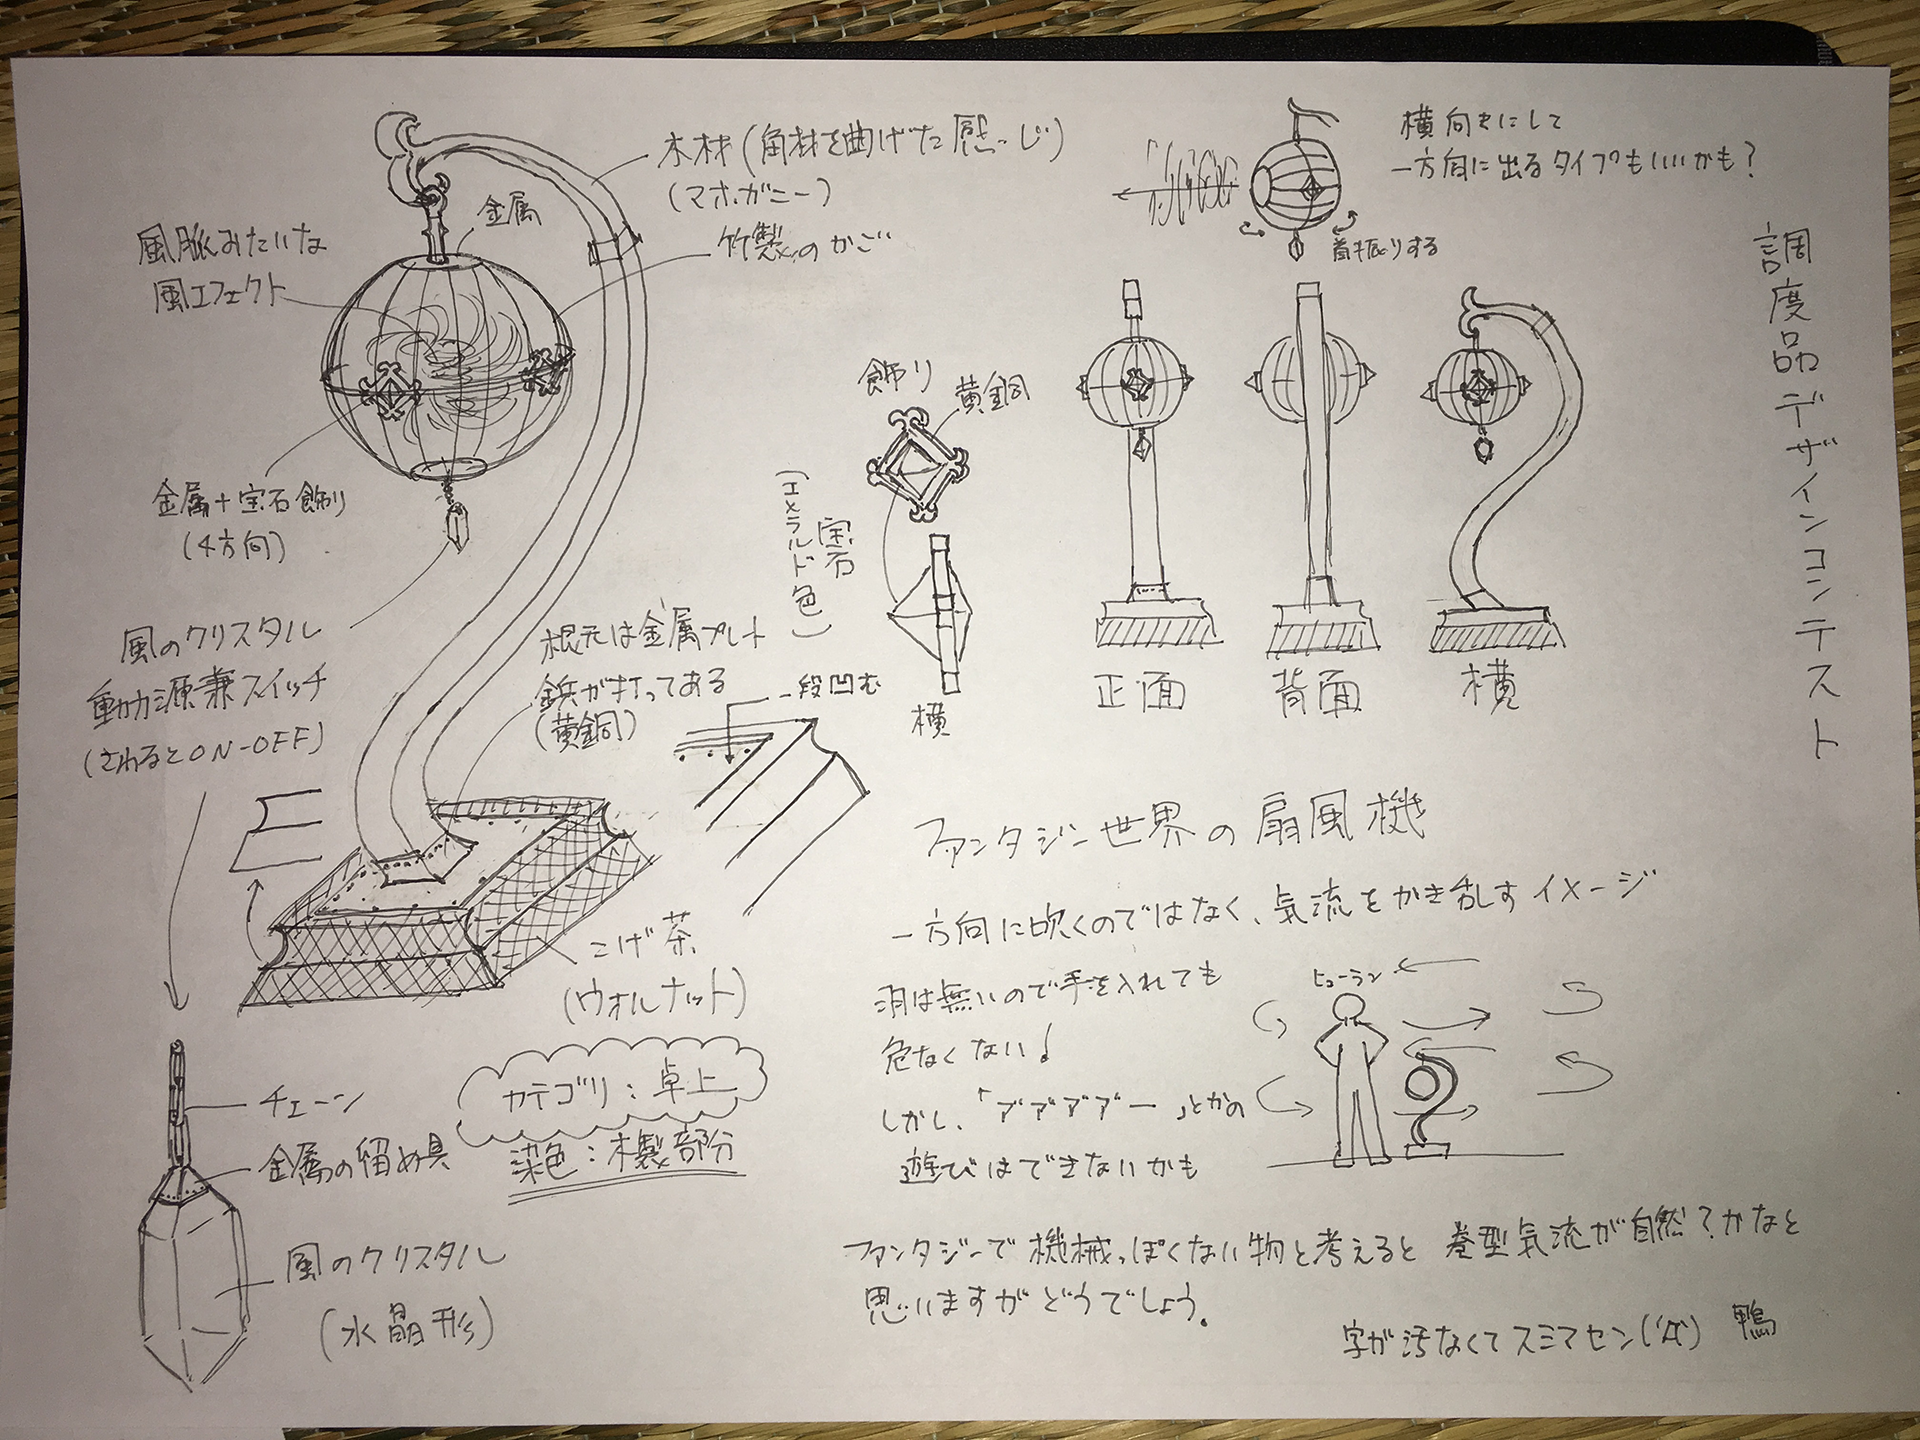 調度品デザインコンテスト
木材(角材を曲げた感じ)
(マホガニー)
金属
竹製のかご
風脈みたいな
風エフェクト
金属+宝石飾り
(4方向)
風のクリスタル
動力源兼スイッチ
(さわるとON-OFF)
根元は金属プレート
鋲が打ってある
(黄銅)
一段凹む
こげ茶
(ウォルナット)
チェーン
金属の留め具
風のクリスタル
(水晶形)
カテゴリ:卓上
染色:木製部分
飾り
黄銅
宝石
(エメラルド色)
横
横向きにして
一方向に出るタイプもいいかも?
首振りする
正面
背面
横
ファンタジー世界の扇風機
一方向に吹くのではなく、気流をかき乱すイメージ
羽は無いので手を入れても
危なくない!
しかし、「アアアアー」とかの
遊びはできないかも
ヒューラン
ファンタジーで機械っぽくない物と考えると巻型気流が自然?かなと
思いますがどうでしょう。
字が汚なくてスミマセン('Д') 鴨